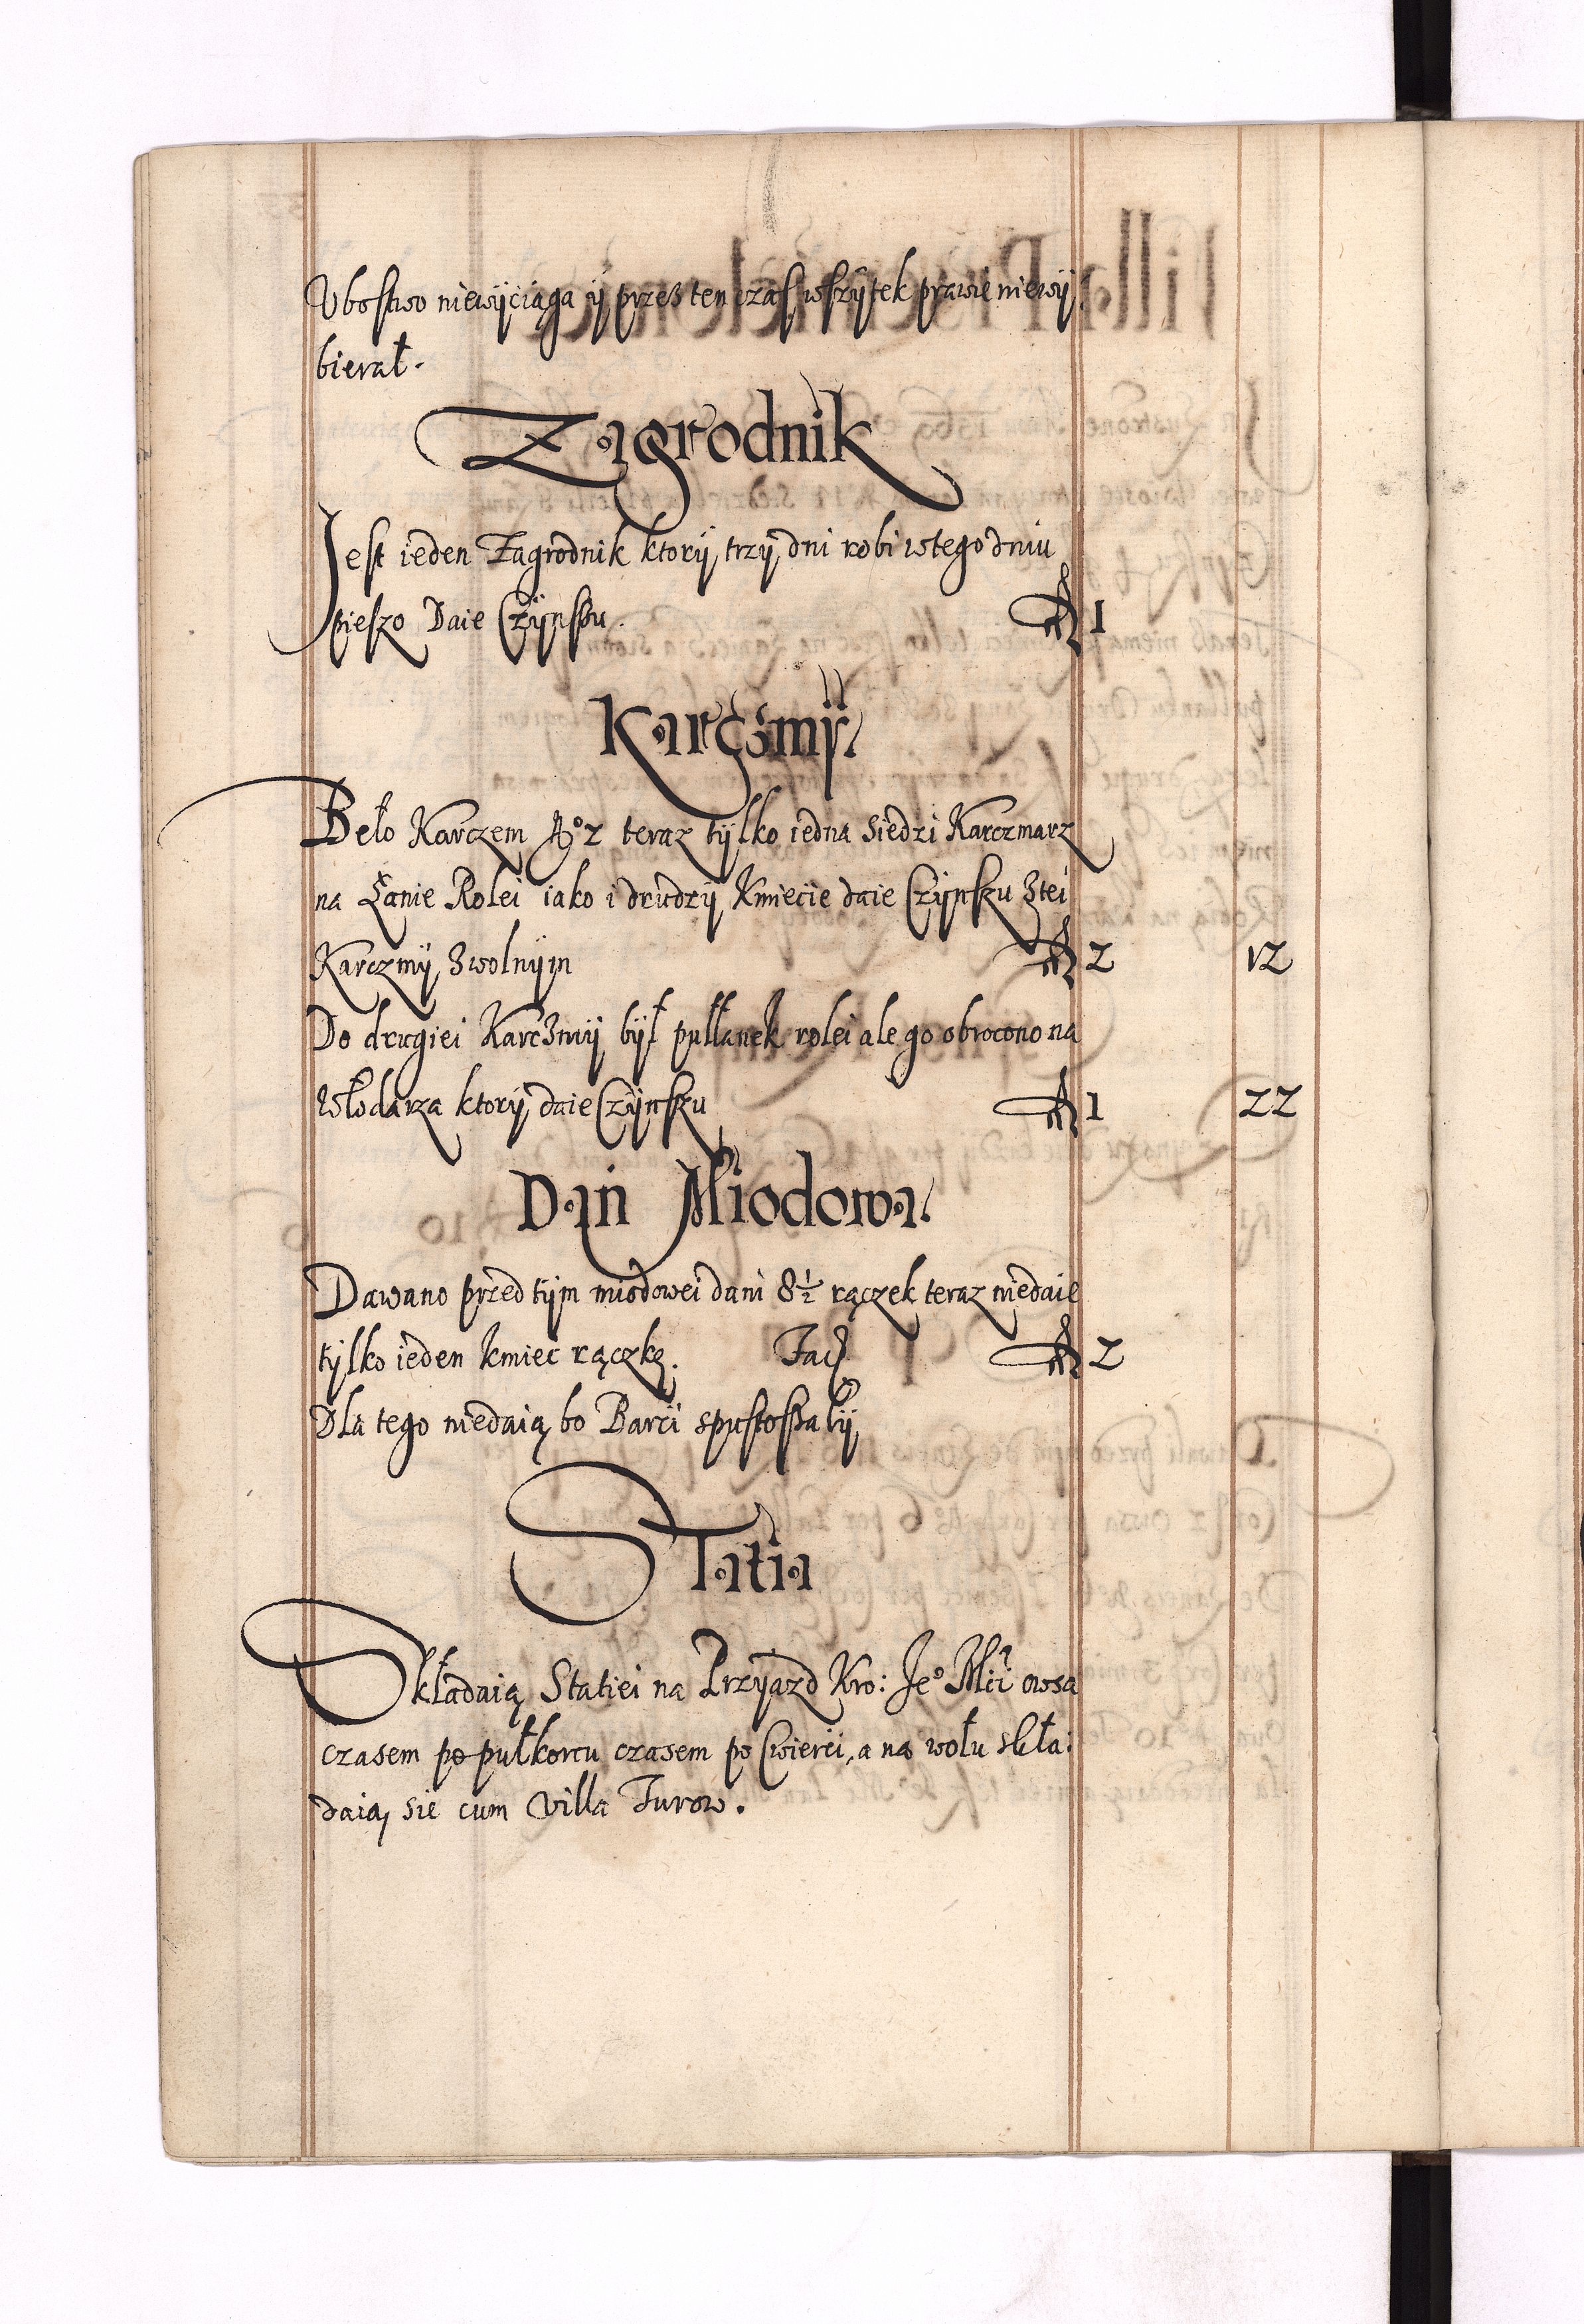 Vbostwo niewyciąga ÿ przeß ten czas wszÿtek prawie niewÿ
bierał.
Zagrodnik
Jest ieden Zagrodnik ktorÿ trzÿ dni robi w tegodniu
pieszo Daie Czÿnszu. 1
Karcżmÿ.
Beło Karczem No 2 teraz tÿlko iedna siedzi Karczmarz
na Łanie Rolei iako i drudzÿ Kmiecie daie Czÿnszu Ztei
Karczmÿ Zwolnÿm 2 12
Do drugiei Karczmÿ bÿł pułłanek rolei ale go obrocono na
Włodarza ktorÿ daie Czÿnszu 1 22
Dań Miodowa.
Dawano przed tÿm miodowei dani 8½ rączek teraz niedaie
tÿlko ieden kmiec rączkę. Facit 2
Dla tego niedaią bo Barci spustoszałÿ
Statia
Składaią Statiei na Przÿazd Kro: Jeo Mći owsa
czasem po pułkorcu czasem po Cwierci, a na wołu skła:
daią sie cum Villa Turow.